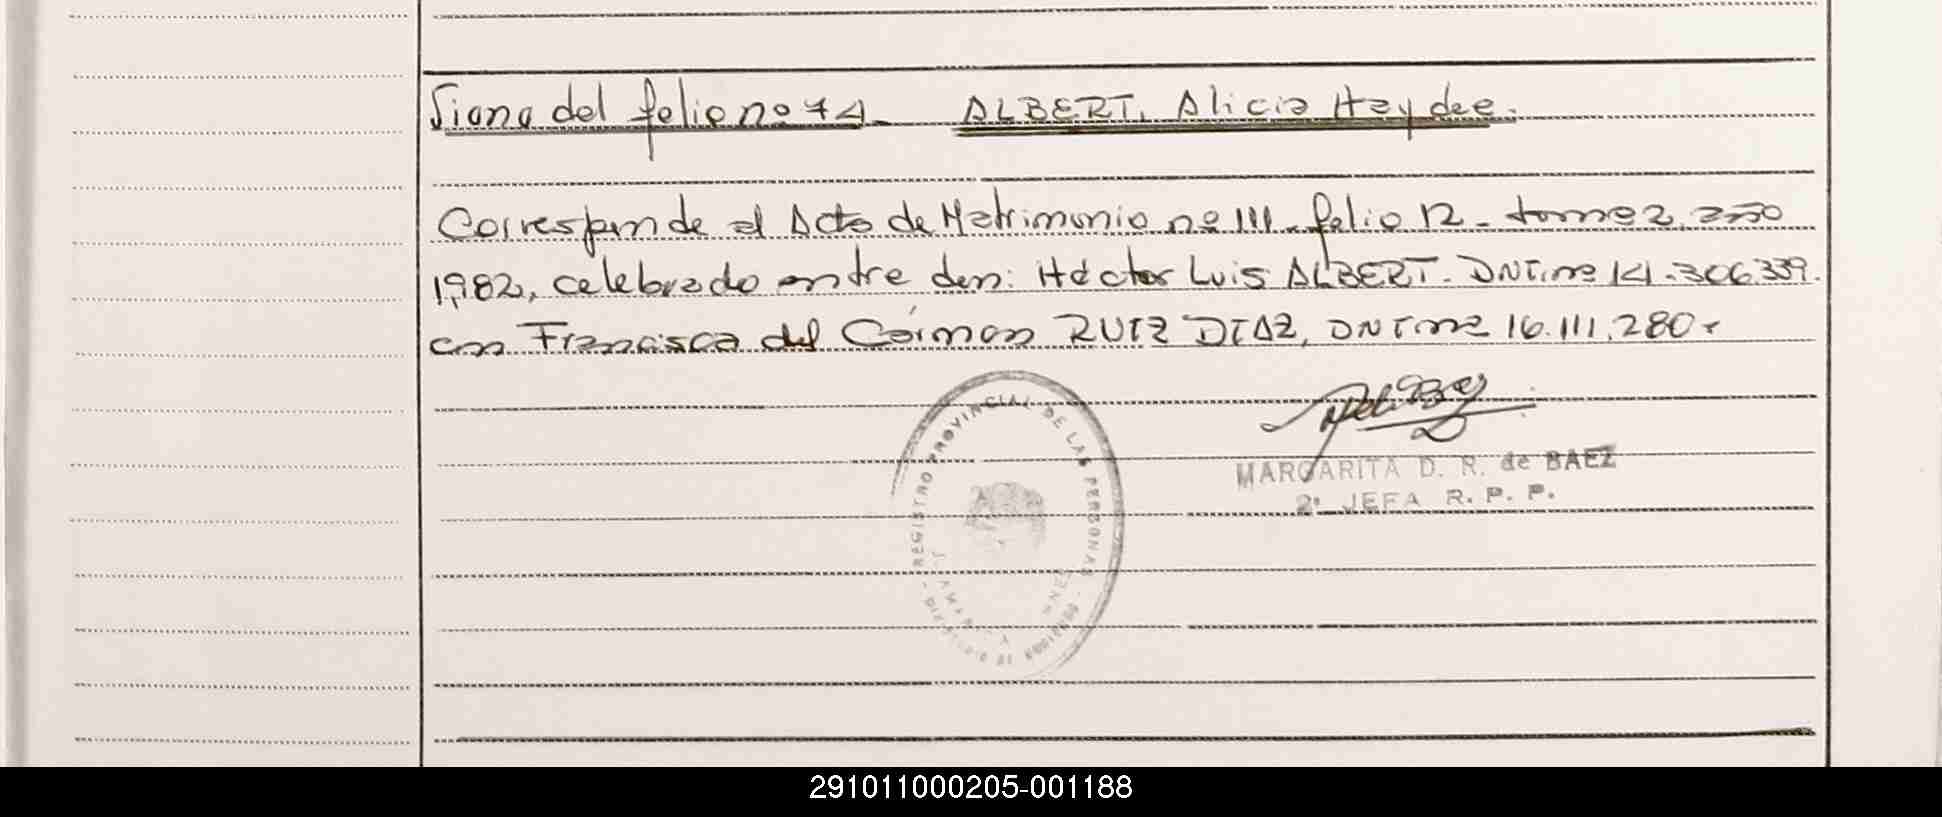 Viene del folio nº 74. ALBERT, Alicia Haydee.
Corresponde al Acta de Matrimonio nº 111. folio 12. tomo 2, año
1,982, celebrado entre don: Héctor Luis ALBERT. DNI.nº 14.306.339.
con Francisca del Cármen RUIZ DIAZ, DNI nº 16.111.280.
REGISTRO PROVINCIAL DE LAS PERSONAS
MARGARITA D. R. de BAEZ
2ª JEFA R. P. P.
291011000205-001188